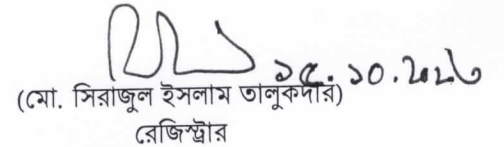 ১৫.১০.২০২৬
(মো. সিরাজুল ইসলাম তালুকদার)
রেজিস্ট্রার